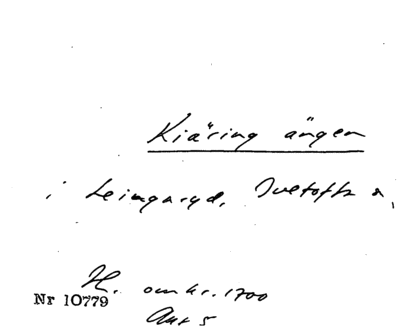 Kiäring ängen
i Leimgaryd, Ivetofta s,
H. omkr. 1700
Nr 10779
Akt 5